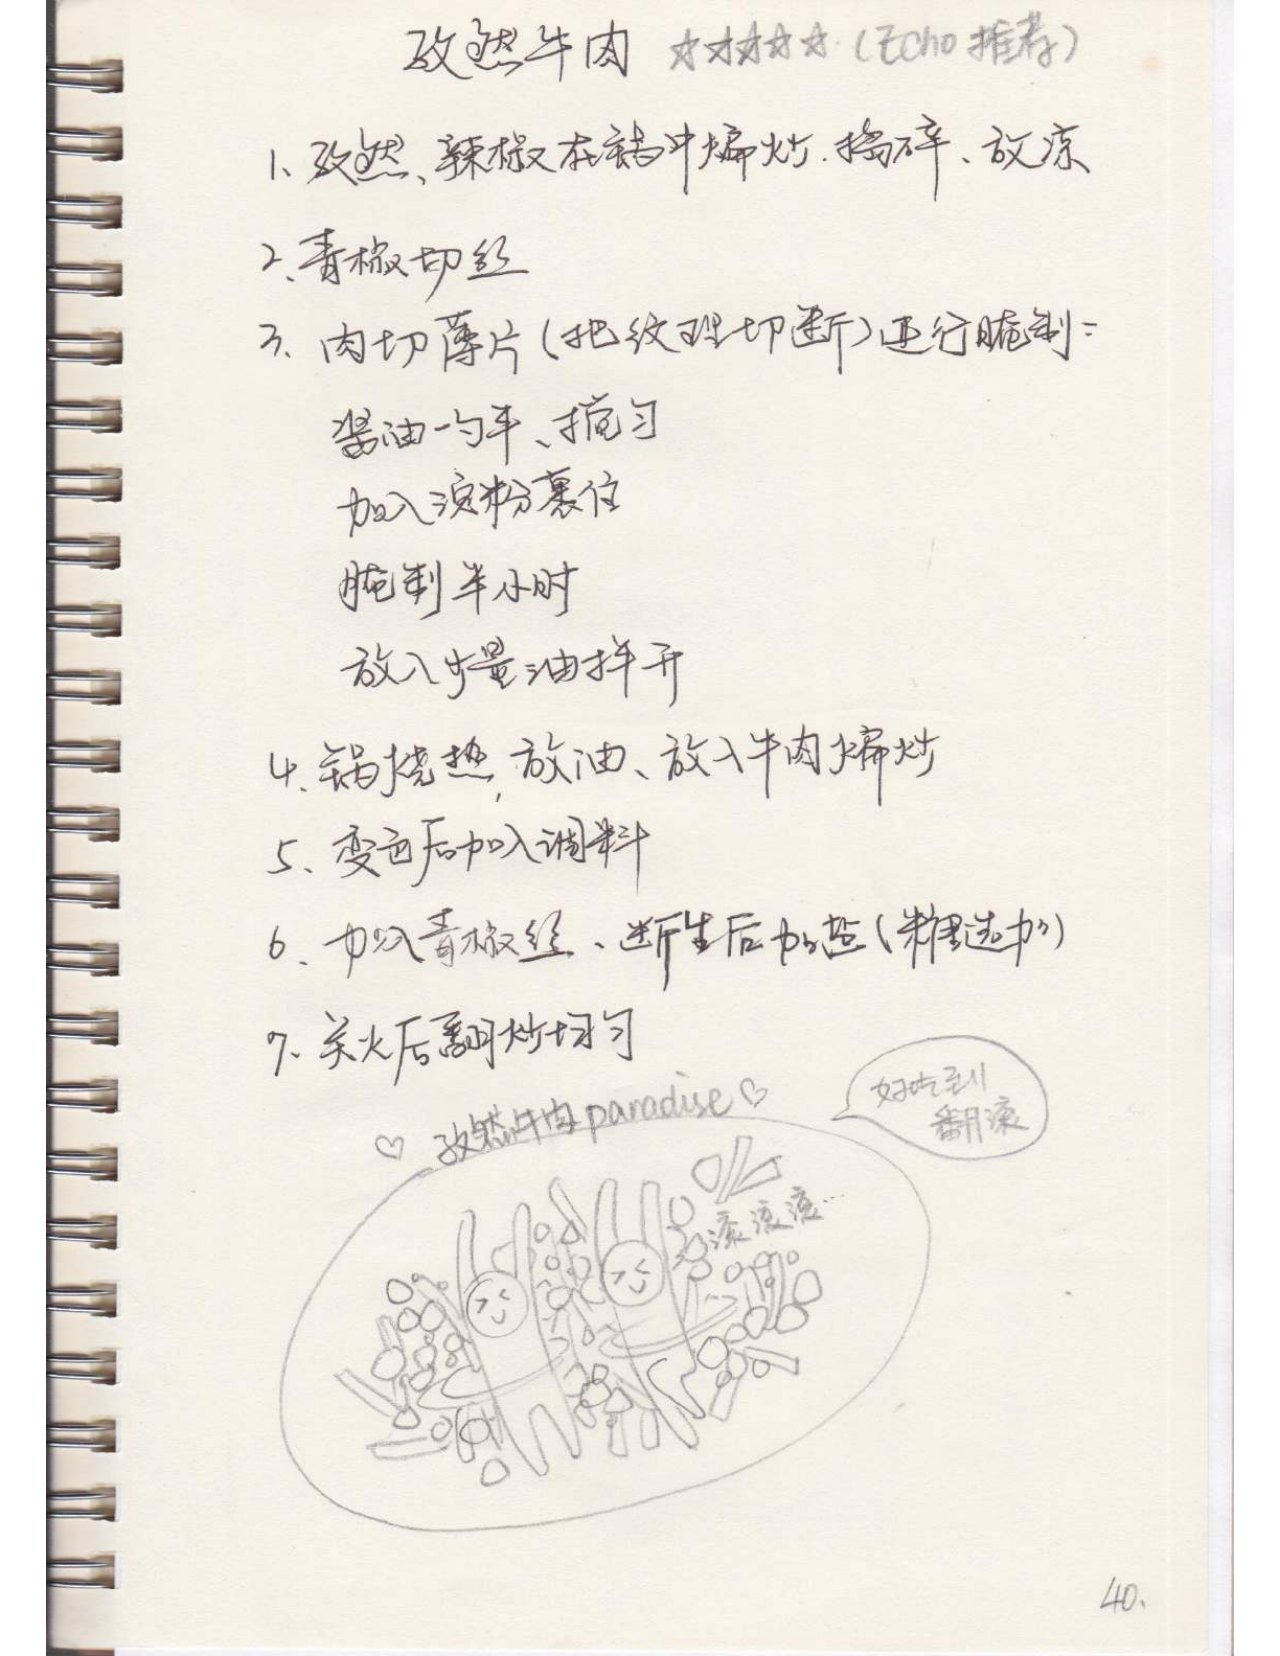 孜然牛肉 ☆☆☆☆☆ (Echo 推荐)
1、孜然、辣椒在锅中煸炒、捣碎、放凉
2、青椒切丝
3、肉切薄片(把纹理切断)进行腌制:
酱油一勺半、搅匀
加入淀粉裹住
腌制半小时
放入少量油拌开
4、锅烧热,放油、放入牛肉煸炒
5、变色后加入调料
6、加入青椒丝、断生后加盐(糖选加)
7、关火后翻炒均匀
♡ 孜然牛肉 paradise ♡
好吃到
翻滚
滚滚滚…
40.